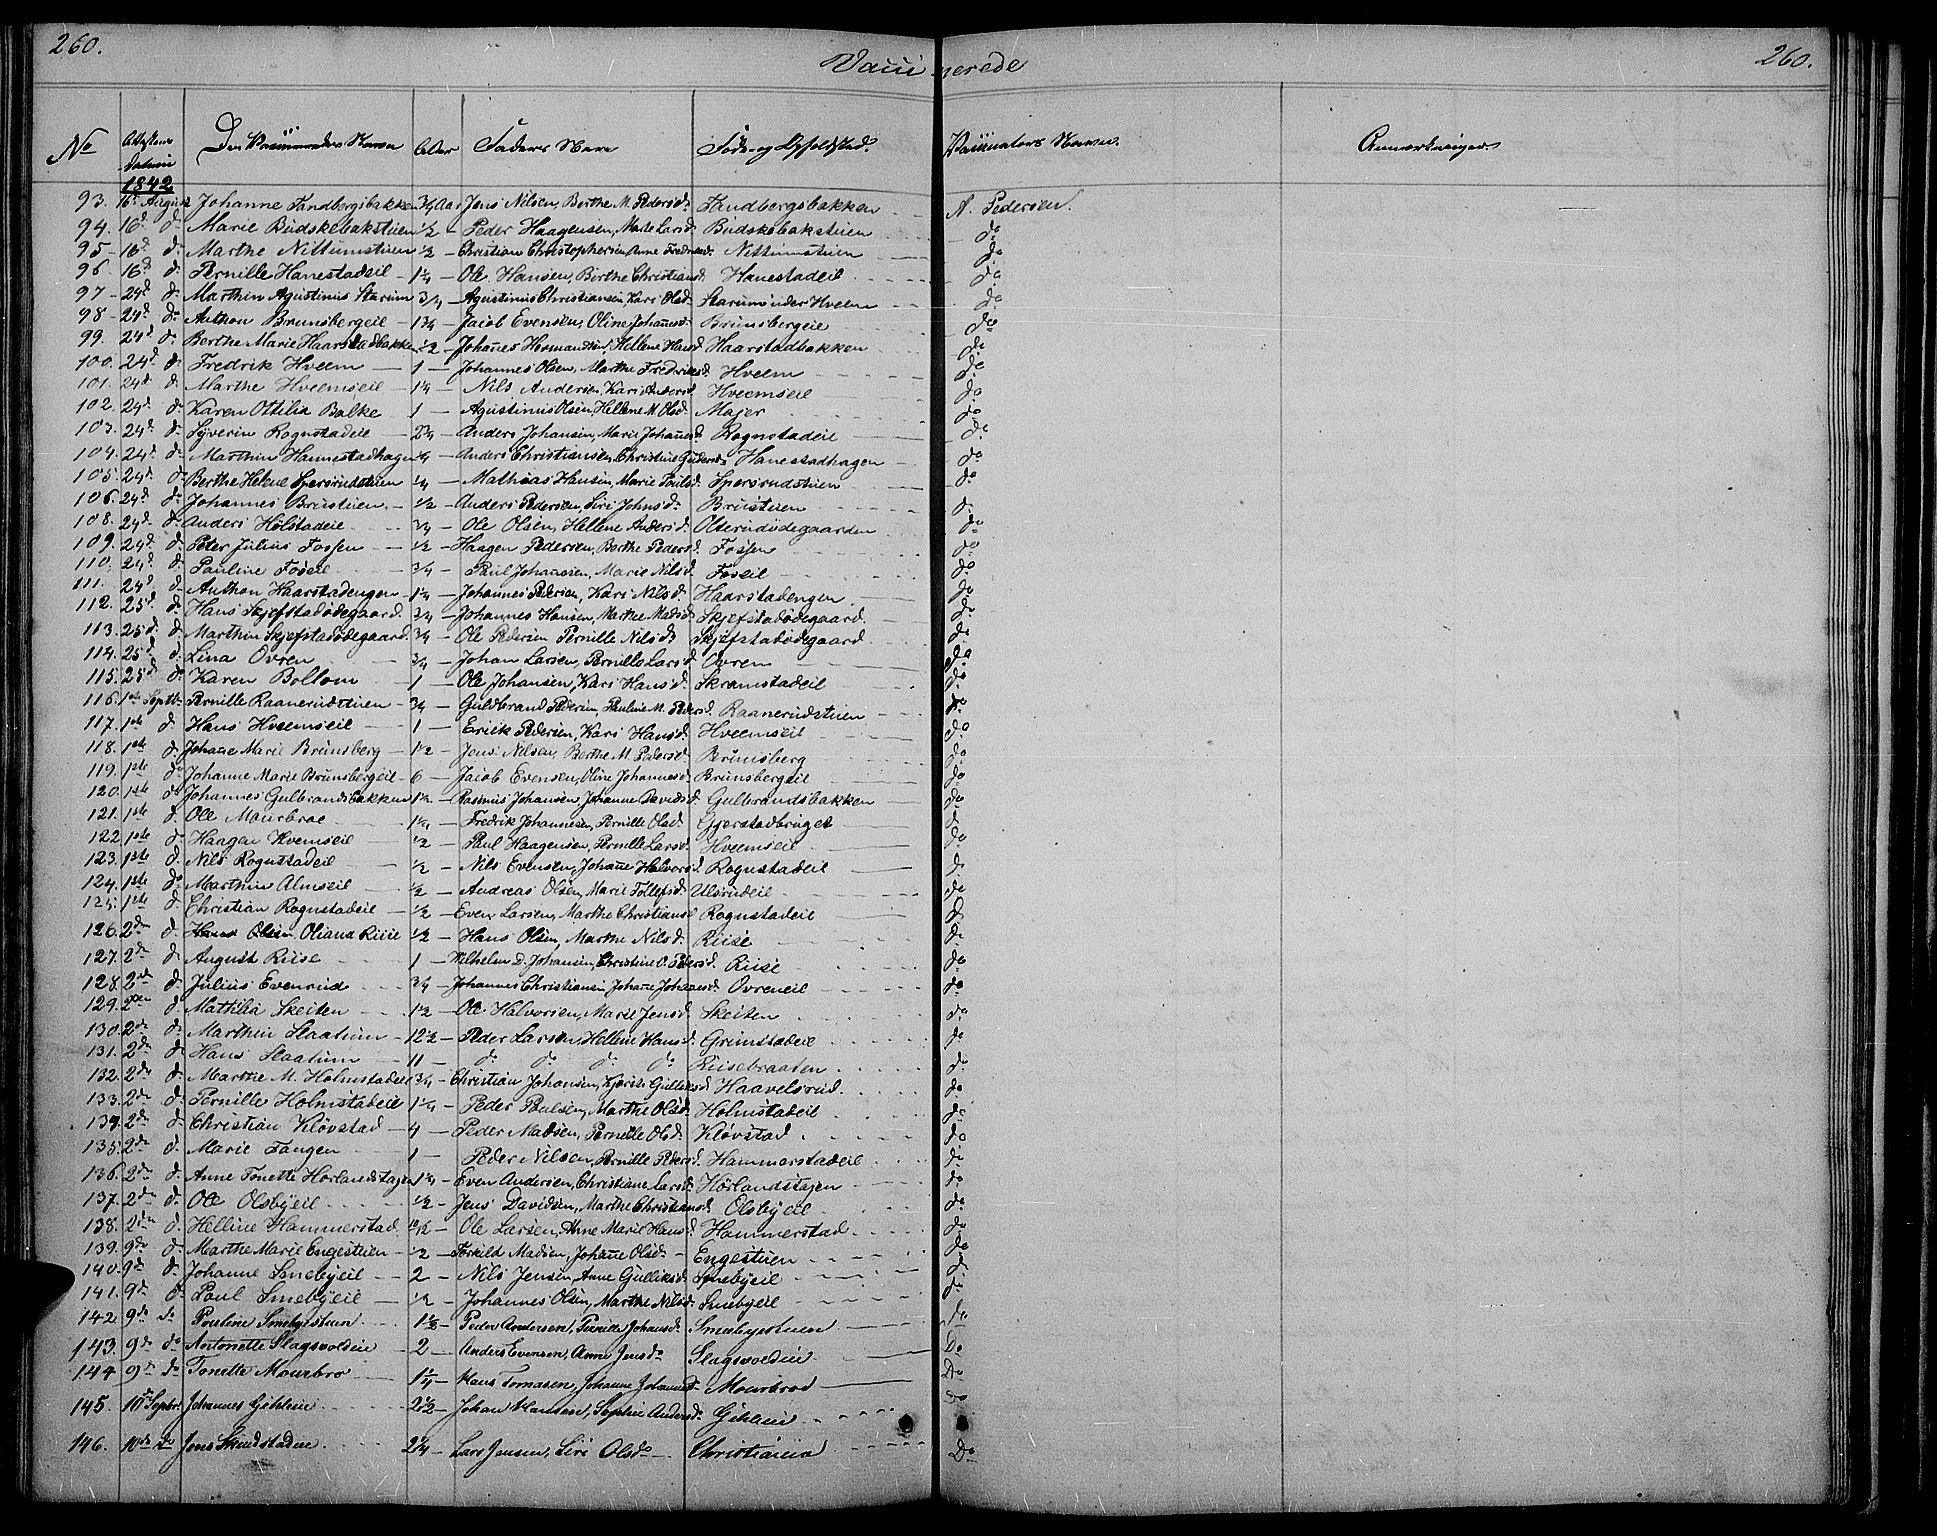 260.
Vaccinerede
260.
No Attestens Datum Den Vaccineredes Navn Alder Faders Navn Føde- og Opholdstæd Vaccinators Navn Anmærkninger
1842
93. 16d August Johanne Tandbergsbakken 3/4 Aar Jens Nilsen, Berthe M. Pedersd. Tandbergsbakken A. Pedersen.
94. 16d do Marie Budskebakstuen 1/2 Peder Haagensen, Marte Larsd. Budskebakstuen do
95 16d do Marthe Nittumstuen 1/2 Christian Christophersen Anne Fredriksd. Nittumstuen do
96. 16d do Pernille Hanestadeil 1 1/4 Ole Hansen, Birthe Christiansd. Hanestadeil do
97 24d do Marthin Agustinus Starum 3/4 Agustinus Christiansen, Kari Olsd. Starum under Hveem do
98 24d do Anthon Brunsbergeil 1 3/4 Jacob Evensen, Oline Johannesd. Brunsbergeil do
99. 24d do Berthe Marie Haarstadbakken 1/2 Johannes Hermandsen, Hellene Hansd. Haarstadbakken do
100. 24d do Fredrik Hveem 1 Johannes Olsen, Marthe Fredriksd. Hveem do
101. 24d do Marthe Hveemseil 1 1/4 Nils Andersen, Kari Andersd. Hveemseil do
102. 24d do Karen Ottilia Balke 1 Agustinus Olsen, Hellene M. Olsd. Majer do
103. 24d do Syverin Rognstadeil 2 3/4 Anders Johansen, Marie Johannesd. Rognstadeil do
104. 24d do Marthin Hannestadhagen 1/4 Anders Christiansen, Christine Gudersd. Hanestadhagen do
105. 24d do Berthe Helene Spersrudstuen 1/4 Mathias Hansen, Marie Poulsd. Spersrudstuen do
106. 24d do Johannes Brustuen 1/2 Anders Pedersen, Siri Johnsd. Brustuen do
108. 24d do Anders Holstadeie 3/4 Ole Olsen, Hellene Andersd. Olterudødegaarden do
109. 24d do Peter Julius Fossen 1/2 Haagen Pedersen, Berthe Pedersd. Fossen do
110. 24d do Pauline Foseil 3/4 Paul Johansen, Marie Nilsd. Foseil do
111. 24d do Anthon Haarstadengen 1 1/4 Johannes Pedersen, Kari Nilsd. Haarstadengen do
112. 25d do Hans Skjefstadødegaard 3/4 Johannes Hansen, Marthe Madsd. Skjefstadødegaard do
113. 25d do Marthin Skjefstadødegaard 3/4 Ole Pedersen Pernille Nilsd. Skjefstadødegaard do
114. 25d do Lina Ovren 3/4 Johan Larsen, Pernille Larsd. Ovren do
115. 25d do Karen Bollom 1 Ole Johansen, Kari Hansd. Skramstadeil do
116. 1ste Septbr. Pernille Raanerudstuen 3/4 Guldbrand Pedersen, Pauline M. Pedersd. Raanerudstuen do
117. 1ste do Hans Hveemseil 1 Errick Pedersen, Kari Hansd. Hveemseil do
118. 1ste do Johanne Marie Brunsberg 1 1/2 Jens Nilsen, Berthe M. Pedersd. Brunsberg do
119. 1ste do Johanne Marie Brunsbergeil 6 Jacob Evensen, Oline Johannesd. Brunsbergeil do
120. 1ste do Johannes Gulbrandsbakken 1 1/2 Rasmus Johansen, Johanne Davidsd. Gulbrandsbakken do
121. 1ste do Ole Mourbroe 1 1/4 Fredrik Johannesen, Pernille Olsd. Gjerstadbruget do
122. 1ste do Haagen Hvemseil 1/2 Paul Haagensen, Pernille Larsd. Hveemseil do
123. 1ste do Nils Rognstadeil 1/2 Nils Evensen, Johanne Halvorsd. Rognstadeil do
124. 1ste do Marthin Almseil 1/2 Andreas Olsen, Marie Tollefsd. Ulsrudeil do
125. 1ste do Christian Rognstadeil 1/2 Even Larsen, Marthe Christiansd. Rognstadeil do
126. 2den do Hans Olsen Oliana Riise 1/2 Hans Olsen, Marthe Nilsd. Riise do
127. 2den do August Riise 1 Wilhelm D. Johansen, Christine O. Pedersd. Riise do
128. 2den do Julius Evenrud 3/4 Johannes Christiansen, Johanne Johansd. Ovreneil do
129. 2den do Mathilia Skeiten 1 1/2 Ole Halvorsen, Marie Jensd. Skeiten do
130. 2den do Marthin Slaatum 12 1/2 Peder Larsen, Hellene Hansd. Grimstadeil do
131. 2den do Hans Slaatum 11 do do do do Riisebraaten do
132. 2den do Marthe M. Holmstadeil 3/4 Christian Johansen, Kjersti Gulliksd. Haavelsrud do
133. 2den do Pernille Holmstadeil 1 1/4 Peder Paulsen, Marthe Olsd. Holmstadeil do
134. 2den do Christian Kløvstad 4 Peder Madsen, Pernille Olsd. Kløvstad do
135. 2den do Marie Tangen 1 Peder Nilsen, Pernille Pedersd. Hammerstadeil do
136. 2den do Anne Tonette Hørlandstagen 1 1/4 Even Andersen, Christiane Larsd. Hørlandstagen do
137. 2den do Ole Olsbyeil 1/2 Jens Davidsen, Marthe Christiansd. Olsbyeil do
138. 2den do Helline Hammerstad 10/12 Ole Larsen, Anne Marie Hansd. Hammerstad do
139. 9de do Marthe Marie Engestuen 1/2 Torkild Madsen, Johanne Olsd. Engestuen do
140. 9de do Johanne Smebyeil 2 Nils Jensen, Anne Gulliksd. Smebyeil do
141. 9de do Paul Smebyeil 1/2 Johannes Olsen, Marthe Nilsd. Smebyeil do
142 9de do Pouline Smebystuen 1 1/2 Peder Andersen, Pernille Johansd. Smebyestuen do
143. 9de do Antonette Slagsvoldeie 2 Anders Evensen, Anne Jensd. Slagsvoldeie Do
144 9de do Tonette Mourbro 1 1/4 Hans Tomasen, Johanne Johannesd. Mourbroe Do
145. 10de Septbr. Johannes Gihleie 2 1/2 Johan Hansen, Sophie Andersd. Gihleie Do
146. 10de do Jens Skindstadeie 2 1/4 Lars Jensen, Siri Olsd. Christiania Do